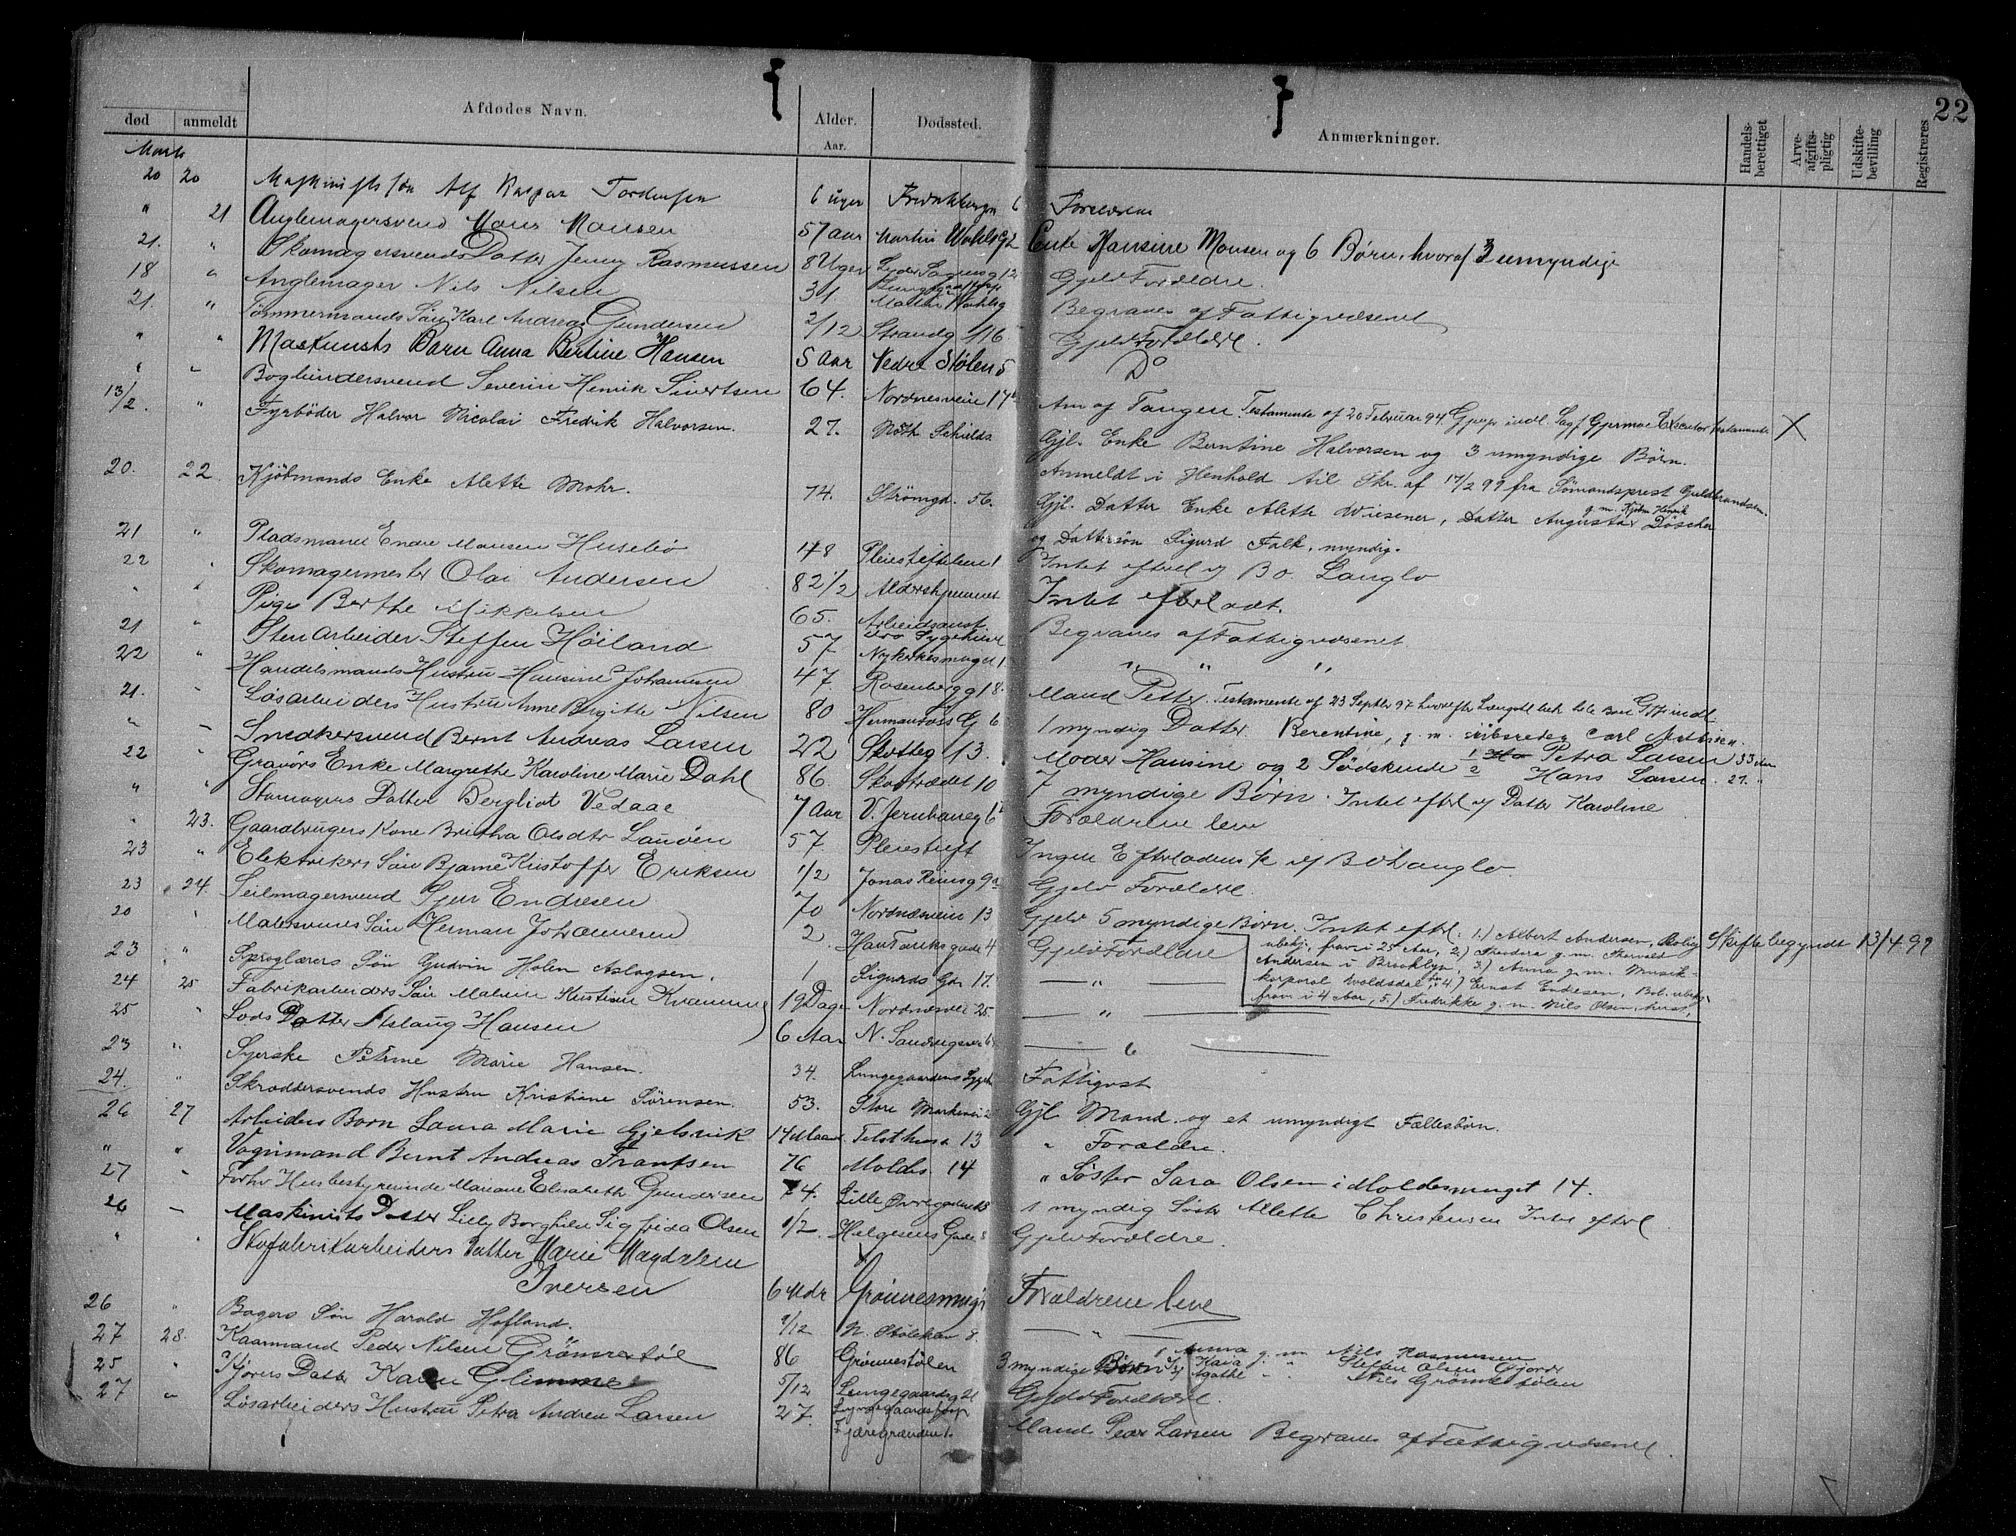 22
død anmeldt Afdødes Navn. Alder. Aar. Dødssted. Anmærkninger. Handelsberettiget Arveafgiftspligtig Udskiftebevilling Registreres
Marts
20 20 Maskinists søn Alf Kaspar Tordensen 6 uger 6 Forældrene
" 21 Anglemagersvend Hans Monsen 57 aar Martin Vahlsg 2 Enke Hansine Monsen og 6 Børn, hvoraf 3 umyndige
21. " Skomagersvends Datter Jenny Rasmussen 8 Uger Lyder Sagensg 12 Gjelv Forældre.
18 " Anglemager Nils Nilsen 31 Martin Vahlsg Begraves af Fattigvæsenet
21. " Tømmermands Søn Karl Andreas Gundersen 2/12 Strandg 116 Gjelv Forældre.
" " Maskinists Barn Anna Bertine Hansen 5 Aar Nedre Stølen 5 Do
" " Bogbindersvend Severin Henrik Sivertsen 64. Nordnesveien 14 Anm af Tangen. Testamente af 20 Februar 94 Executor testamente X
13/2. " Fyrbøder Halvor Nicolai Fredrik Halvorsen. 27. Nøth Schields Gjl. Enke Berntine Halvorsen og 3 umyndige Børn.
Anmeldt i Henhold til Skr. af 17/2 99 fra Sømandsprest Guldbrandsen.
20. 22. Kjøbmands Enke Alette Mohr. 74. Strømgd. 56. Gjl. Datter Enke Alette Wiesener, Datter Augusta g. m. Kjøbm Henrik Døscher
og Dattersøn Sigurd Falk, myndig.
21 " Pladsmand Endre Monsen Husebø 48 Pleiestiftelsen 1 Intet efterl ej Bo Langlo
22 " Skomagermester Olai Andersen 82 1/2 Aldershjemmet Intet efterladt.
" " Pige Berthe Mikkelsen 65. Arbeidsanst Begraves af Fattigvæsenet
21 " Stenarbeider Steffen Høiland 57 " " "
22 " Handelsmands Hustru Hansine Johannesen 47. Nykirkesmuget 1 Mand Petter. Testamente af 23 Septbr 97
21. " Løsarbeiders Hustru Anne Birgitte Nilsen 80 Rosenbergg 18. 1 myndig Datter Berentine, g. m. skibsreder Carl
" " Snedkersvend Bernt Andreas Larsen 22 Hermanfoss G 6 Moder Hansine og 2 Sødskende 1 Petra Larsen 33 aar
2 Hans Larsen 27. "
22 " Gravørs Enke Margrethe Karoline Marie Dahl 86. Skotteg 13. 7 myndige Børn. Intet efterl ej Datter Karoline
" " Skomagers Datter Bergliot Vedaae 7 Aar Skostrædet 10 Forældrene leve
" 23. Gaardbrugers Kone Brita Olsdtr Lauvøen 57 V. Jernbaneg 6 Pleiestift Ingen Efterladenskab ej Bo Langlo
23 " Elektrikers Søn Bjarne Kristoffer Eriksen 1/2 Jonas Reinsg 9 Gjelv Forældre.
23 24. Seilmagersvend Sjur Endresen 70 Nordnæsveien 13 Gjelv 5 myndige Børn. Intet efterl: 1.) Albert Andersen, Bolig Skifte begyndt 13/4 99
ubekj., from i 25 Aar, 2.) Theodora g. m. Thorvald
Andersen i Brooklyn, 3.) Anna g. m. Musik-
korporal Woldsdal, 4.) Ernst Endresen, Bol. ubekj.
from i 4 Aar, 5.) Fredrikke g. m. Nils Olsen,
20 " Malersvends Søn Herman Johannesen 2. Hans Tanksgade 4 Gjelv Forældre
23 " Sproglærers Søn Gudvin Holen Aslagsen. 1 Sigurds Gd. 17. — " —
24 25 Fabrikarbeiders Søn Malvin Kristian Kvamme 19 Dage Nordnæsvei 25. — " —
25 " Lods Datter Aslaug Hansen 6 Aar N. Sandvigsvei 6 — " —
23 " Syerske Petrine Marie Hansen. 34. Lungegaardens Sygeh Fattigvst
24. " Skræddersvends Hustru Kristiane Sørensen. 53. Store Markevei Gjl Mand og et umyndigt Fællesbørn.
26 27 Arbeiders Barn Laura Marie Gjelsvik 14 Maan. 13 " Forældre.
" " Vognmand Bernt Andreas Frantsen 76 Moldes. 14 " Søster Sara Olsen i Moldesmuget 14.
27 " Forhv Husbestyrerinde Mariane Elisabeth Gundersen 74. Lille Øvregaden 1 myndig Søster Allette Christensen Intet efterl
26 " Maskinists Datter Lilly Borghild Sigfrida Olsen 1/2. Helgesens Gade 8 Gjelv Forældre.
" " Skofabrikarbeiders Datter Marie Magdalene
Iversen 6 Mdr Grønnesmug Forældrene leve
26 " Bagers Søn Harald Hofland. 9/12 N. Stølekan 8. — " —
27 28. Kaarmand Peder Nilsen Grønnestøl 86 Grønnestølen 3 myndige Børn 1 Anna g. m Nils Rasmussen
2 Kaia " Steffen Olsen Fjord
3 Agathe " Nils Grønnestølen
25 " Kjørers Datter Karen Glimme 5/12 Lungegaardsg 21 Gjelv Forældre.
27 " Løsarbeiders Hustru Petra Andrea Larsen 27. Lungegaardshosp Mand Peder Larsen Begraves af Fattigvæsenet.
Fjæregrænden 1.